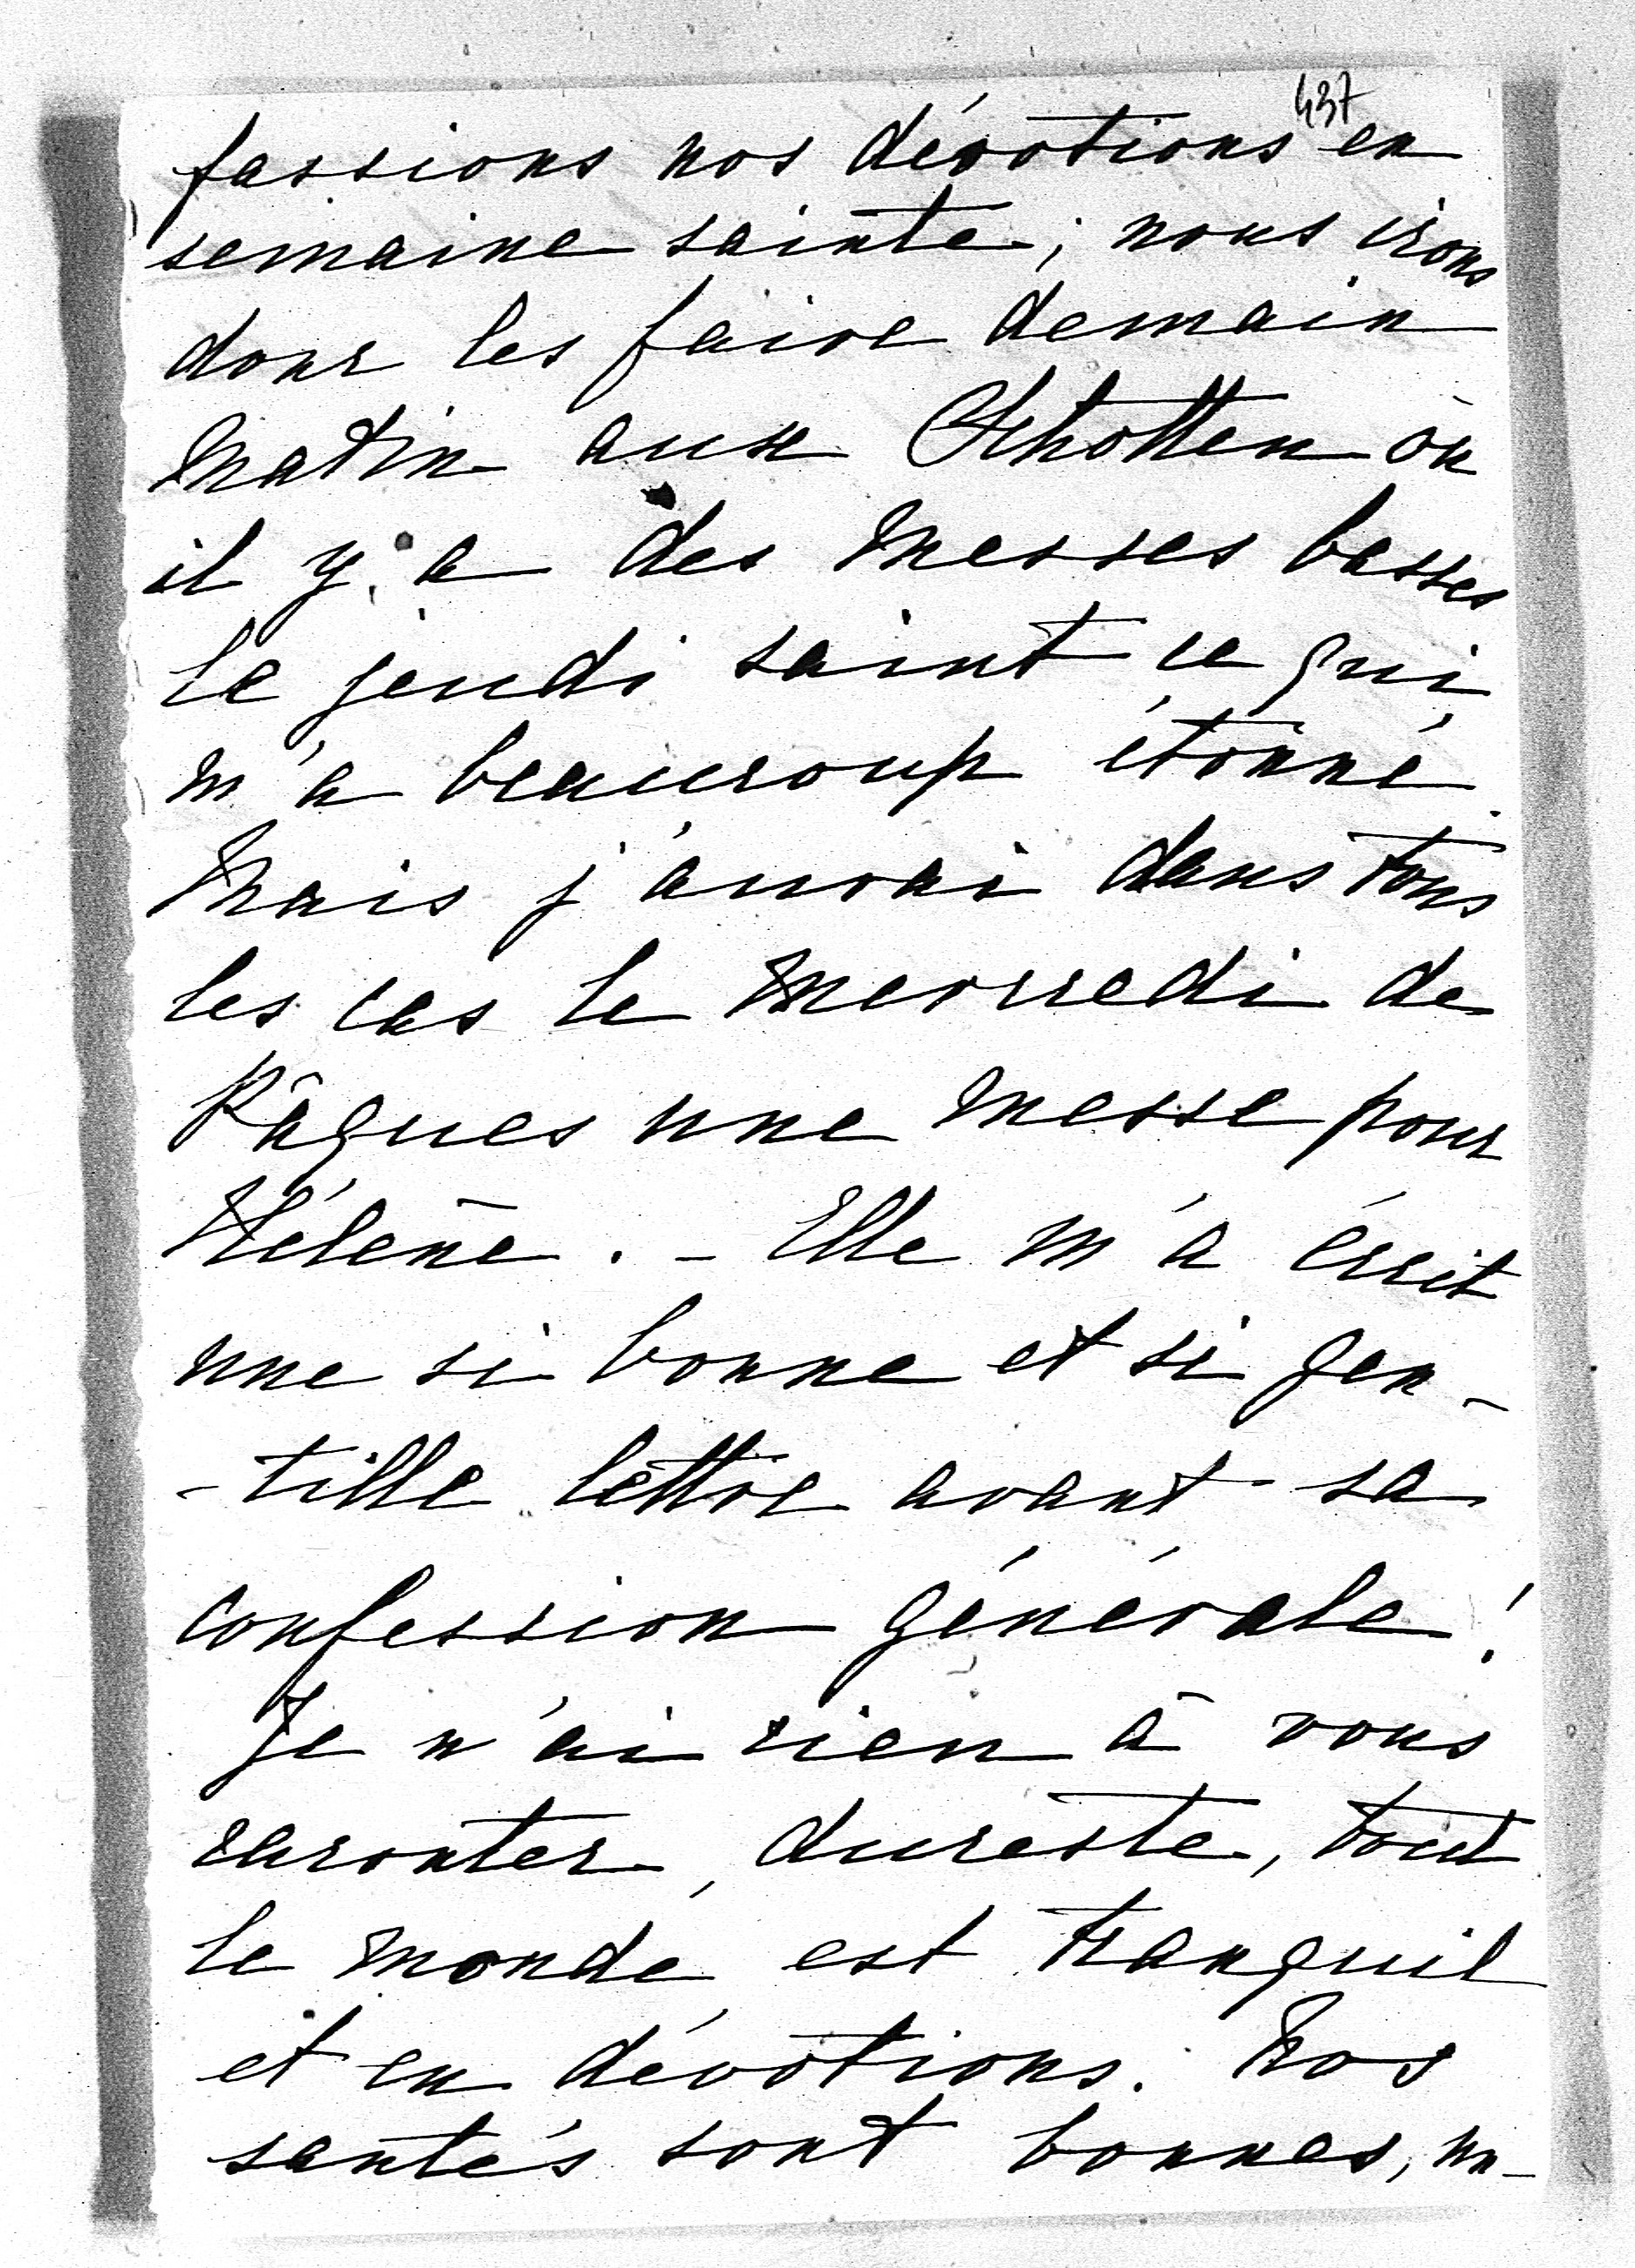 437
fassions nos dévotions en
semaine sainte; nous irons
donc les faire demain
matin aux Schotten où
il y a des messes basses
le jeudi saint ce qui
m'a beaucoup étonné.
Mais j'aurai dans tous
les cas le mercredi de
Pâques une messe pour
Hélène. - Elle m'a écrit
une si bonne et si gen-
-tille lettre avant sa
confession générale!
Je n'ai rien à vous
raconter, dureste, tout
le monde est tranquil
et en dévotions. Nos
santés sont bonnes, un-